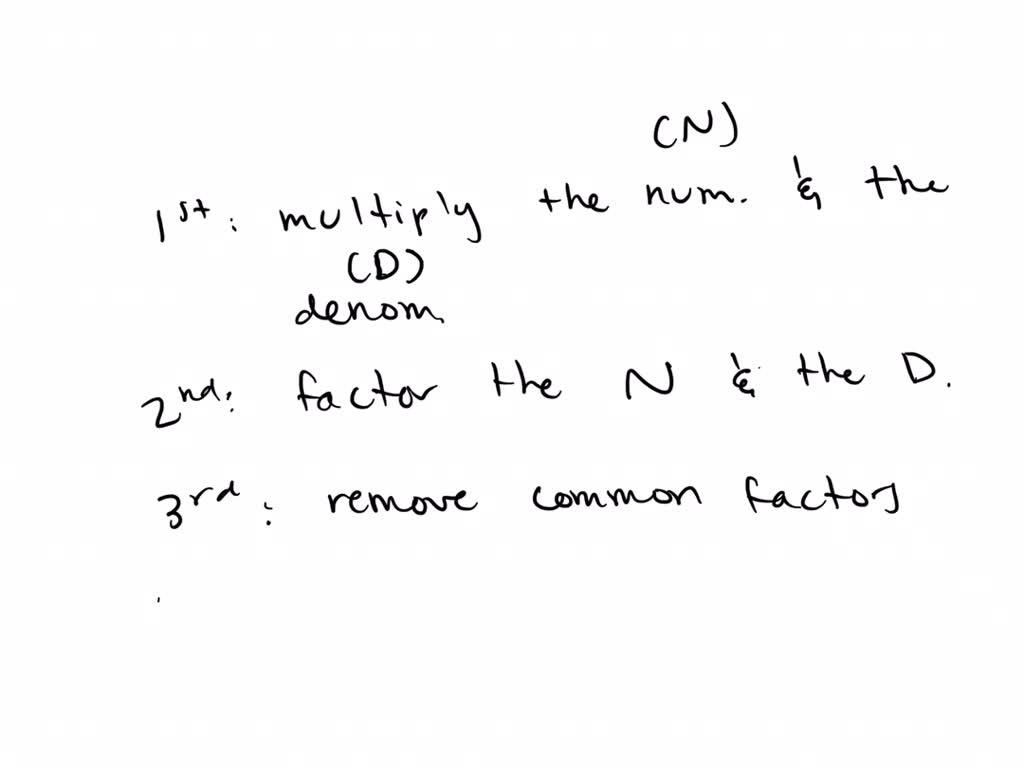 (N)
1st: multiply the num. & the
(D)
denom.
2nd: factor the N & the D.
3rd: remove common factors